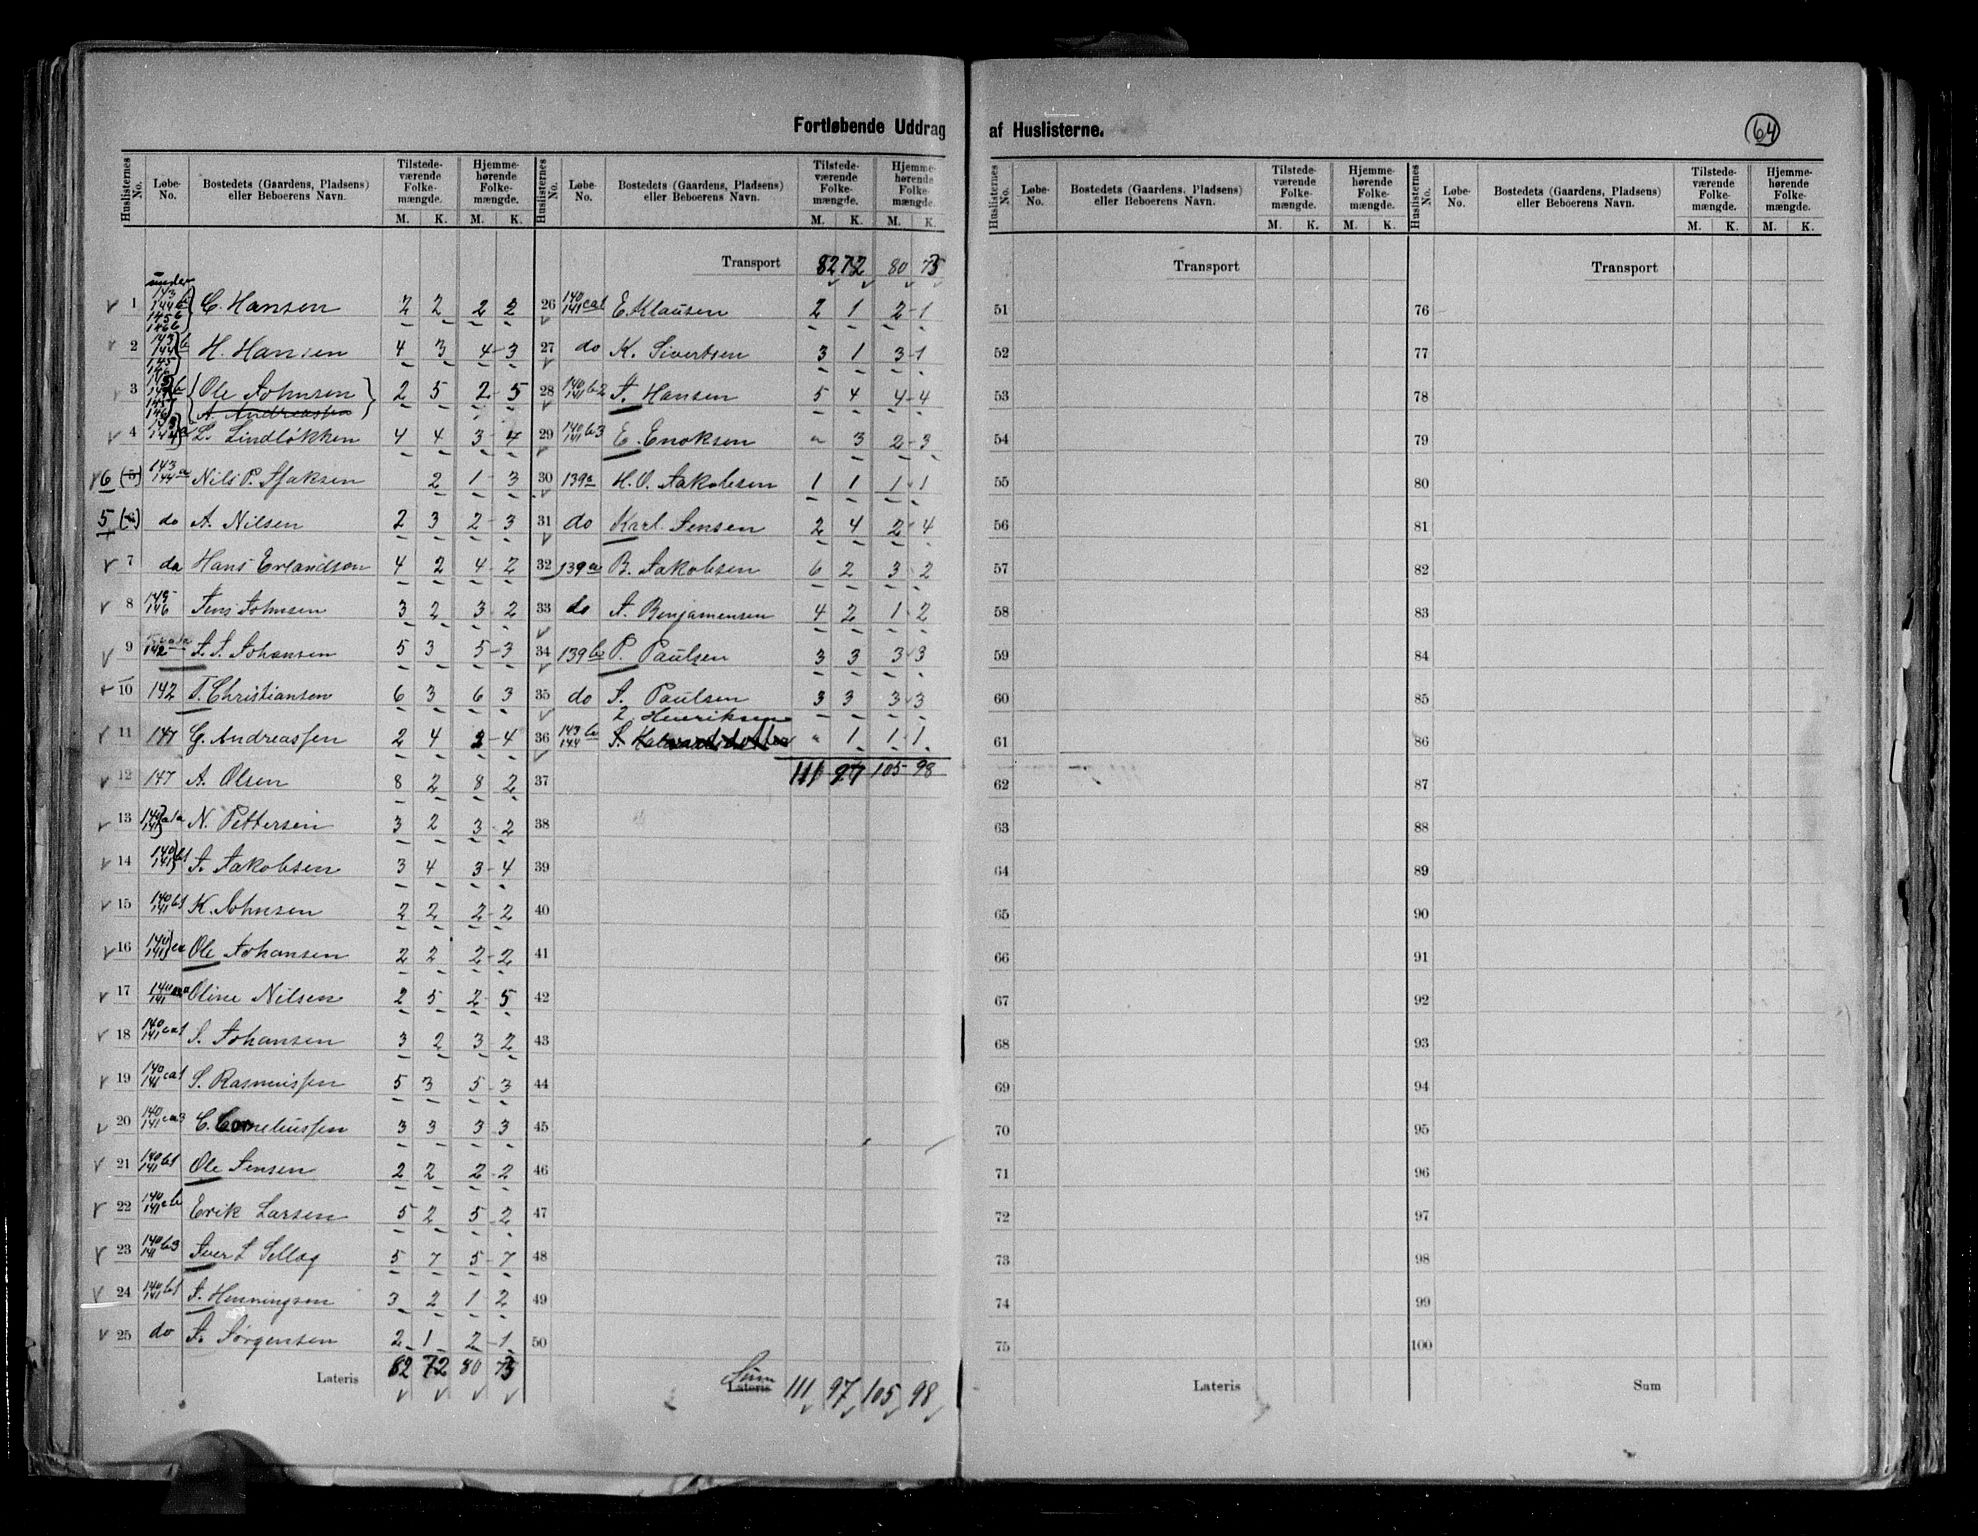 Fortløbende Uddrag af Huslisterne.
64
Huslisternes No. Løbe-No. Bostedets (Gaardens, Pladsens) eller Beboerens Navn. Tilstede-værende Folke-mængde. M. K. Hjemme-hørende Folke-mængde. M. K.
under
1 143 144b 145b 146b C. Hansen 2 2 2 2
2 143 144 145 b H. Hansen 4 3 4-3
3 b Ole Johnsen 2 5 2-5
A. Andreassen
4 143 144 a L. Lindløkken 4 4 3-4
6 (5) 143 144 a Nils P. Isaksen 2 1-3
5 (6) do A. Nilsen 2 3 2-3
7 do Hans Erlandsen 4 2 4-2
8 145 146 Jens Johnsen 3 2 3-2
9 142 J. J. Johansen 5 3 5-3
10 142 T. Christiansen 6 3 6 3
11 147 G. Andreassen 2 4 3-4
12 147 A. Olsen 8 2 8 2
13 140 141 a1a N. Pettersen 3 2 3-2
14 140 141 b1 J. Jakobsen 3 4 3-4
15 140 141 b1 K. Johnsen 2 2 2-2
16 140 141 ca Ole Johansen 2 2 2-2
17 140 141 Oline Nilsen 2 5 2-5
18 140 141 ca1 J. Johansen 3 2 3 2
19 140 141 ca1 S. Rasmussen 5 3 5-3
20 140 141 ca3 C. Corneliussen 3 3 3 3
21 140 141 b1 Ole Jensen 2 2 2-2
22 140 141 cb Erik Larsen 5 2 5-2
23 140 141 b3 Iver J Sellæg 5 7 5-7
24 140 141 b1 J. Henningsen 3 2 1 2
25 do J. Jørgensen 2 1 2-1
Lateris 82 72 80 73
Huslisternes No. Løbe-No. Bostedets (Gaardens, Pladsens) eller Beboerens Navn. Tilstede-værende Folke-mængde. M. K. Hjemme-hørende Folke-mængde. M. K.
Transport 82 72 80 73
26 140 141 ca1 E. Klausen 2 1 2-1
27 do K. Sivertsen 3 1 3-1
28 140 141 b2 J. Hansen 5 4 4-4
29 140 141 b3 E. Enoksen " 3 2-3
30 139a H. O. Jakobsen 1 1 1 1
31 do Karl Jensen 2 4 2 4
32 139a B. Jakobsen 6 2 3 2
33 do A. Benjamensen 4 2 1 2
34 139b P. Paulsen 3 3 3 3
35 do J. Paulsen 3 3 3 3
Henriksen
36 143 144 b " 1 1 1
37 111 97 105 98
38
39
40
41
42
43
44
45
46
47
48
49
50
Lateris Sum 111 97 105 98
Huslisternes No. Løbe-No. Bostedets (Gaardens, Pladsens) eller Beboerens Navn. Tilstede-værende Folke-mængde. M. K. Hjemme-hørende Folke-mængde. M. K.
Transport
51
52
53
54
55
56
57
58
59
60
61
62
63
64
65
66
67
68
69
70
71
72
73
74
75
Lateris
Huslisternes No. Løbe-No. Bostedets (Gaardens, Pladsens) eller Beboerens Navn. Tilstede-værende Folke-mængde. M. K. Hjemme-hørende Folke-mængde. M. K.
Transport
76
77
78
79
80
81
82
83
84
85
86
87
88
89
90
91
92
93
94
95
96
97
98
99
100
Sum